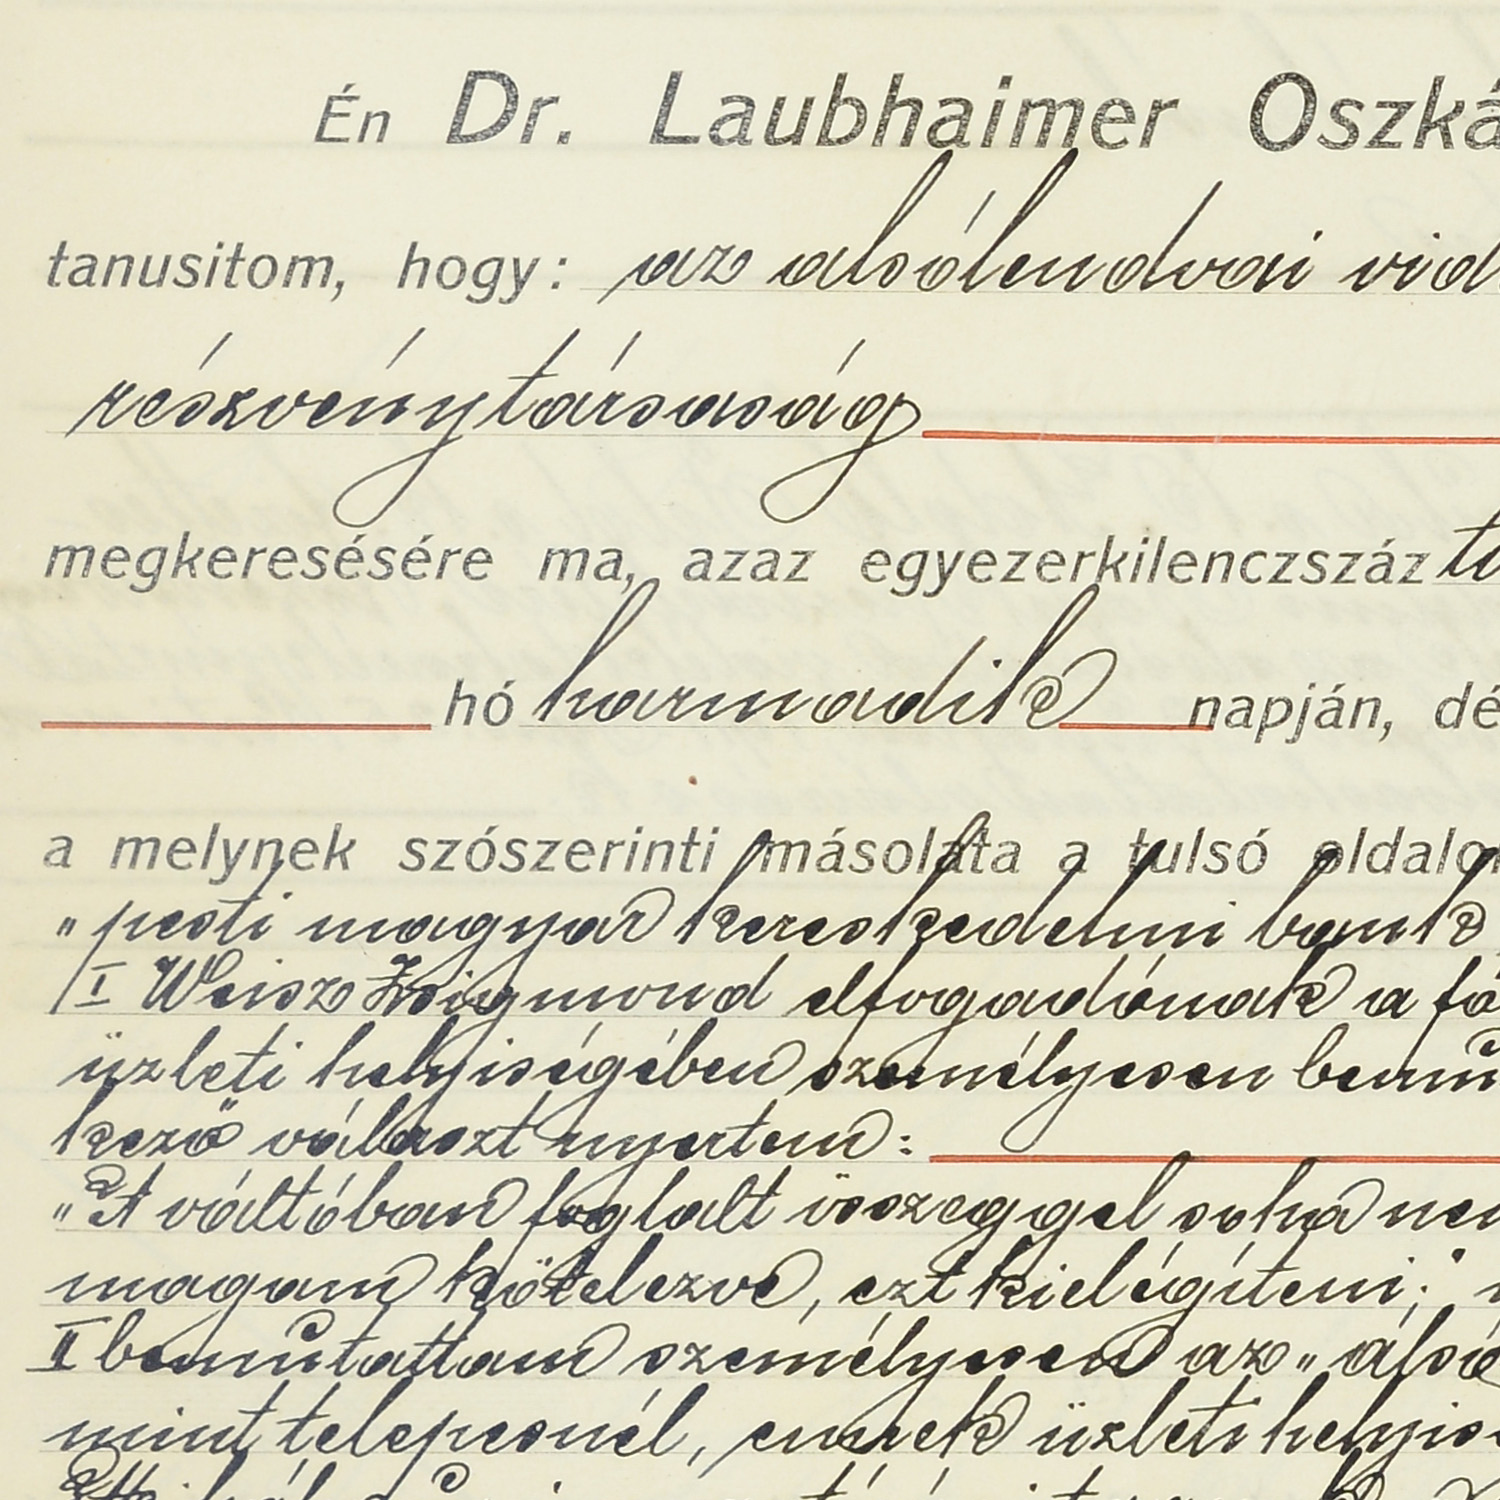 Én Dr. Laubhaimer Oszká
tanusitom, hogy: az alsólendvai vid
részvénytársaság
megkeresésére ma, azaz egyezerkilenczszáz ti
hó harmadik napján, dé
a melynek szószerinti másolata a tulsó oldalon
„pesti magyar kereskedelmi bank
I Weisz Zsigmond elfogadónak a fő
üzleti helyiségében személyesen bemu
kező választ nyertem:
„A váltóban foglalt összeggel soha nem
magam kötelezve, ezt kielégíteni;"
II bemutattam személyesen az „alsó
mint telepesnél, ennek üzleti helyis